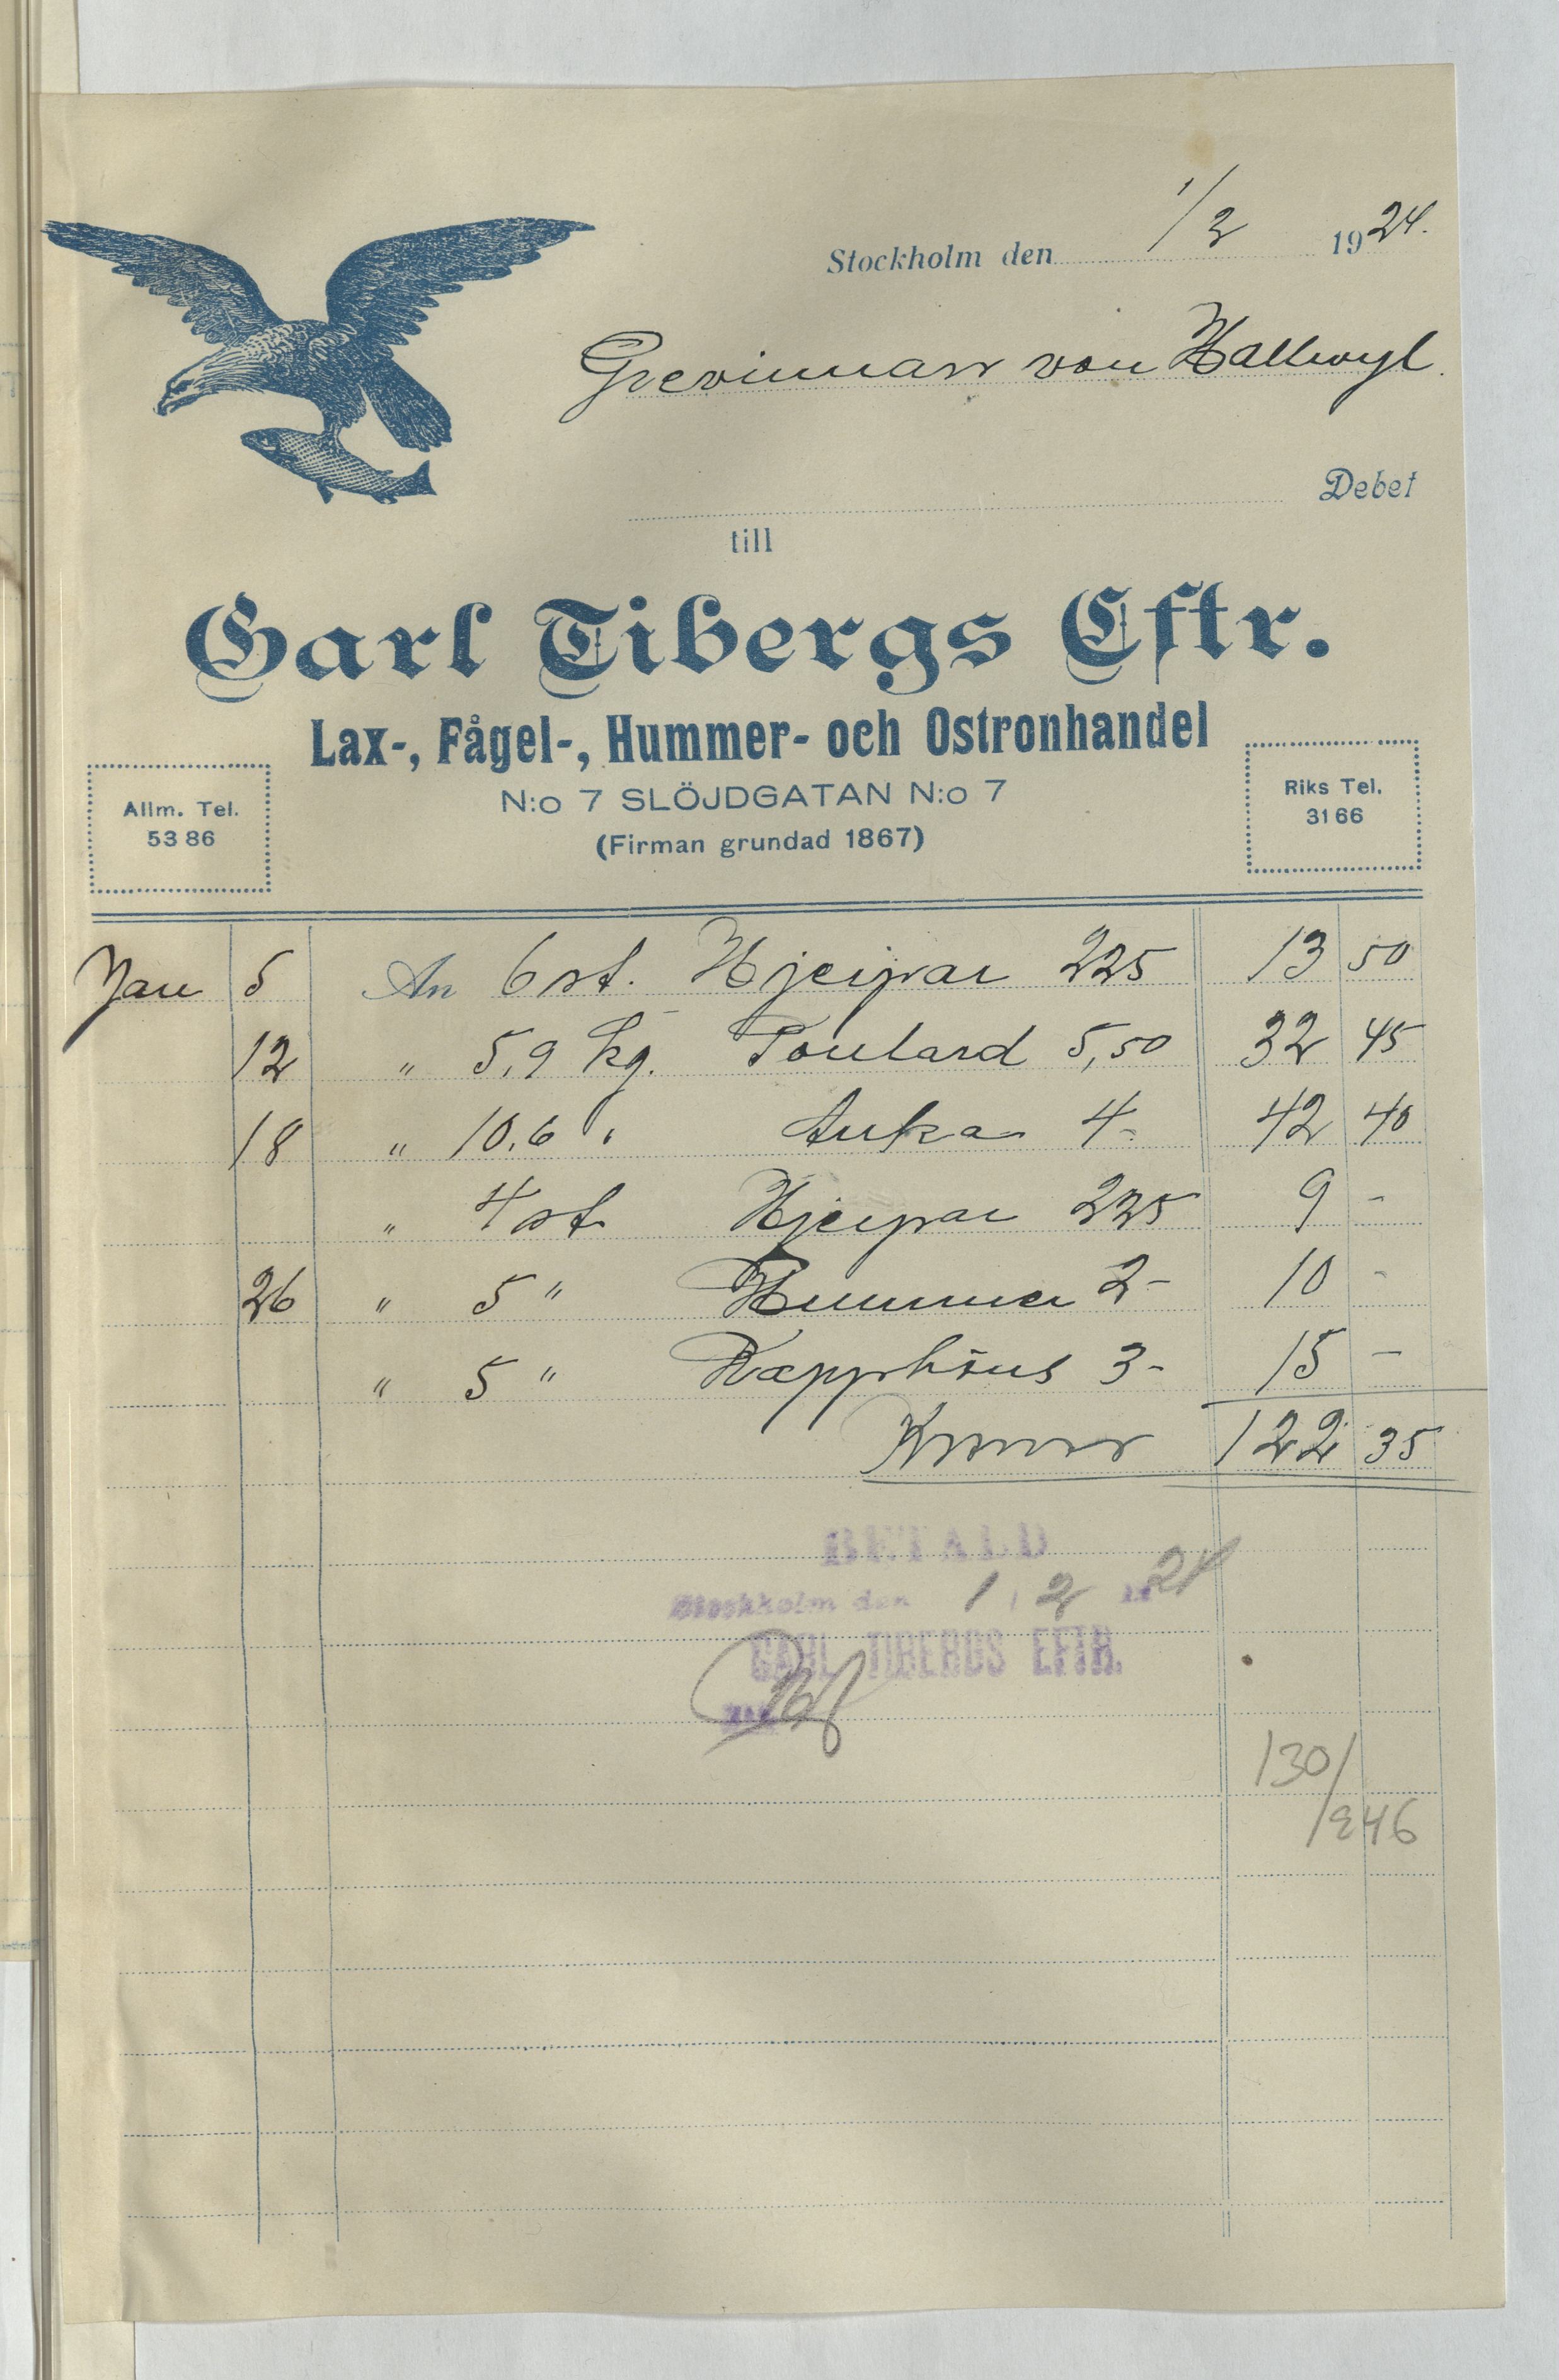 Stockholm den 1/2 1924.
Grevinnan von Hallwyl
Debet
till
Carl Tibergs Eftr.
Lax-, Fågel-, Hummer- och Ostronhandel
N:o 7 SLÖJDGATAN N:o 7
(Firman grundad 1867)
Allm. Tel.
53 86
Riks Tel.
31 66
Jan 5 An 6 st. Hjerpar 225 13 50
12 " 5,9 kg. Poulard 5,50 32 45
18 " 10,6 " Anka 4- 42 40
" 4 st. Hjerpar 225 9 -
26 " 5 " Hummer 2- 10 -
" 5 " Rapphöns 3- 15 -
Kronor 122 35
BETALD
Stockholm den 1/2 1924
CARL TIBERGS EFTR.
130/
/246